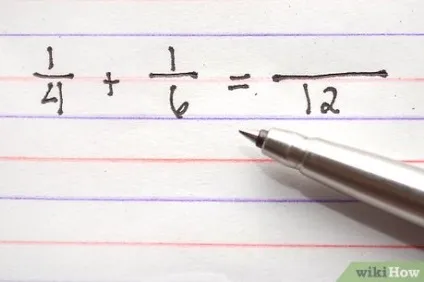 1/4 + 1/6 = /12
wikiHow